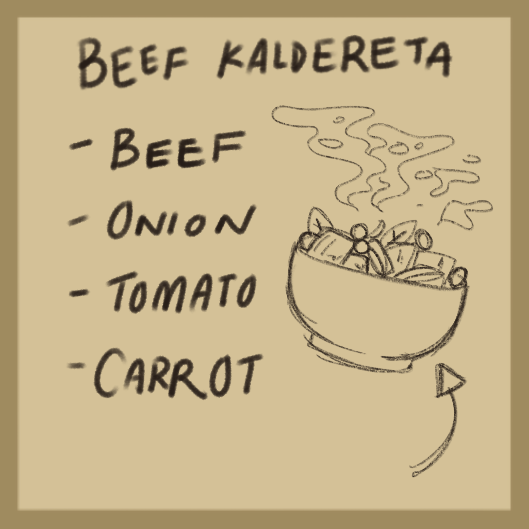 BEEF KALDERETA
- BEEF
- ONION
- TOMATO
- CARROT